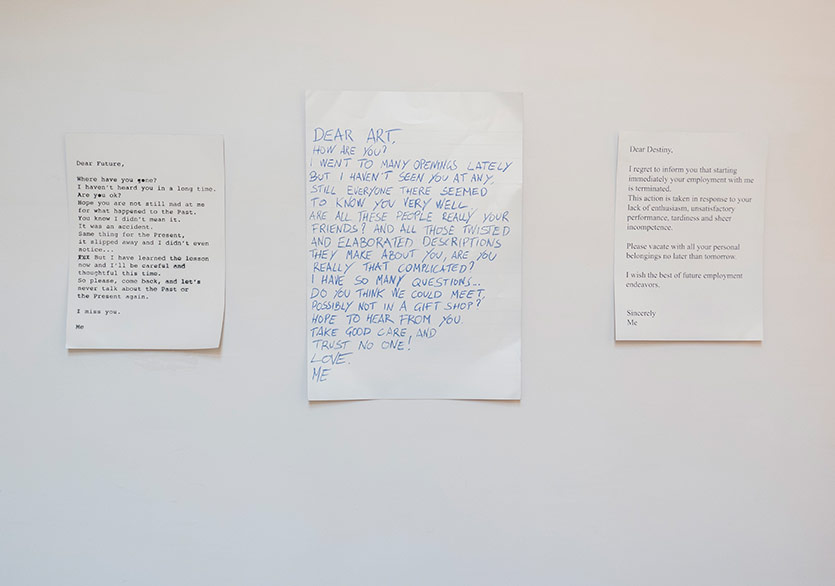 Dear Future,
Where have you gone?
I haven't heard you in a long time.
Are you ok?
Hope you are not still mad at me
for what happened to the Past.
You know I didn't mean it.
It was an accident.
Same thing for the Present,
it slipped away and I didn't even
notice...
But I have learned the lesson
now and I'll be careful and
thoughtful this time.
So please, come back, and let's
never talk about the Past or
the Present again.
I miss you.
Me
DEAR ART,
HOW ARE YOU?
I WENT TO MANY OPENINGS LATELY
BUT I HAVEN'T SEEN YOU AT ANY.
STILL EVERYONE THERE SEEMED
TO KNOW YOU VERY WELL..
ARE ALL THESE PEOPLE REALLY YOUR
FRIENDS? AND ALL THOSE TWISTED
AND ELABORATED DESCRIPTIONS
THEY MAKE ABOUT YOU, ARE YOU
REALLY THAT COMPLICATED?
I HAVE SO MANY QUESTIONS...
DO YOU THINK WE COULD MEET,
POSSIBLY NOT IN A GIFT SHOP?
HOPE TO HEAR FROM YOU.
TAKE GOOD CARE, AND
TRUST NO ONE!
LOVE.
ME
Dear Destiny,
I regret to inform you that starting
immediately your employment with me
is terminated.
This action is taken in response to your
lack of enthusiasm, unsatisfactory
performance, tardiness and sheer
incompetence.
Please vacate with all your personal
belongings no later than tomorrow.
I wish the best of future employment
endeavors.
Sincerely
Me